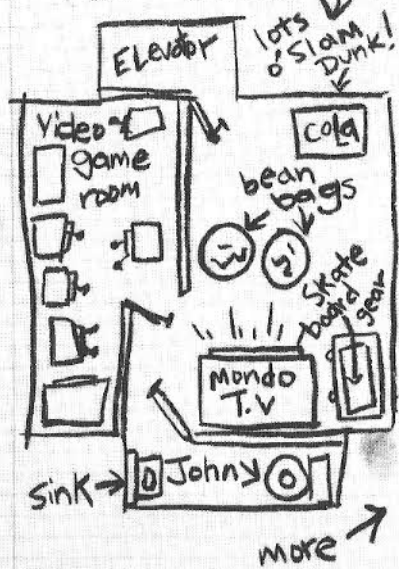 lots
o' Slam
Dunk!
Elevator
Video
game
room
cola
bean
bags
skate
board
gear
Mondo
T.V
sink
Johny
more